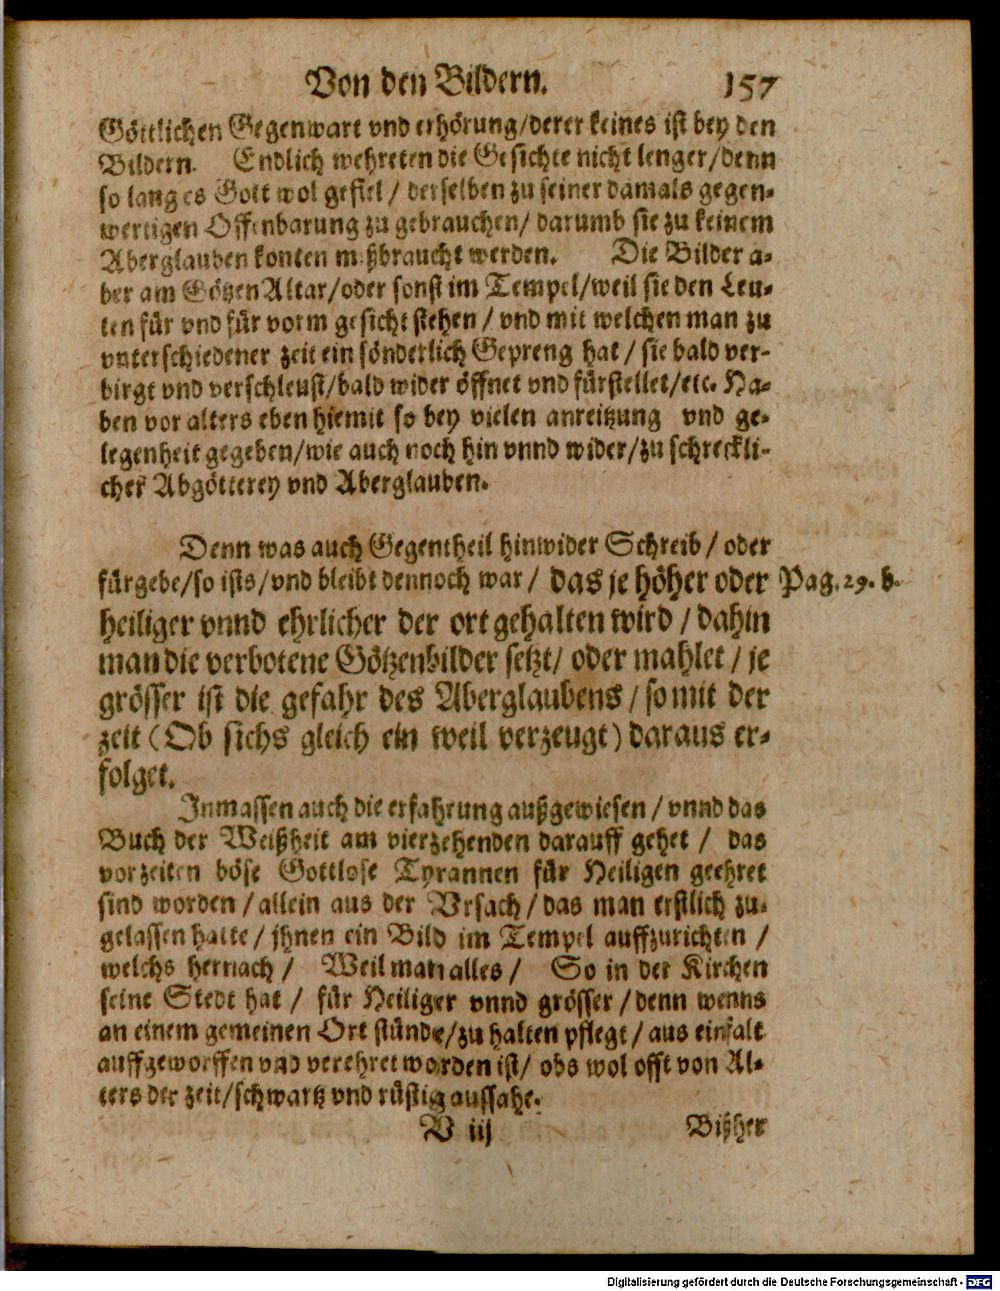 Von den Bildern. 157
Göttlichen Gegenwart vnd erhörung/derer keines ist bey den
Bildern. Endlich wehreten die Gesichte nicht lenger/denn
so lang es Gott wol gefiel / derselben zu seiner damals gegen-
wertigen Offenbarung zu gebrauchen/ darumb sie zu keinem
Aberglauben konten mißbraucht werden. Die Bilder a-
ber am Götzen Altar/oder sonst im Tempel/weil sie den Leu-
ten für vnd für vorm gesicht stehen / vnd mit welchen man zu
vnterschiedener zeit ein sönderlich Gepreng hat / sie bald ver-
birgt vnd verschleust/bald wider öffnet vnd fürstellet/etc. Ha-
ben vor alters eben hiemit so bey vielen anreitzung vnd ge-
legenheit gegeben/wie auch noch hin vnnd wider/zu schreckli-
cher Abgötterey vnd Aberglauben.
Denn was auch Gegentheil hinwider Schreib / oder
fürgebe/so ists/vnd bleibt dennoch war / das je höher oder Pag. 29. b.
heiliger vnnd ehrlicher der ort gehalten wird / dahin
man die verbotene Götzenbilder setzt/ oder mahlet / je
grösser ist die gefahr des Aberglaubens / so mit der
zeit (Ob sichs gleich ein weil verzeugt) daraus er-
folget.
Inmassen auch die erfahrung außgewiesen / vnnd das
Buch der Weißheit am vierzehenden darauff gehet / das
vorzeiten böse Gottlose Tyrannen für Heiligen geehret
sind worden / allein aus der Vrsach / das man erstlich zu-
gelassen hatte / jhnen ein Bild im Tempel auffzurichten /
welchs hernach / Weil man alles / So in der Kirchen
seine Stedt hat / für Heiliger vnnd grösser / denn wenns
an einem gemeinen Ort stünde/zu halten pflegt / aus einfalt
auffgeworffen vnd verehret worden ist/ obs wol offt von Al-
ters der zeit/schwartz vnd rüstig aussahe.
V iij Bißher
Digitalisierung gefördert durch die Deutsche Forschungsgemeinschaft - DFG